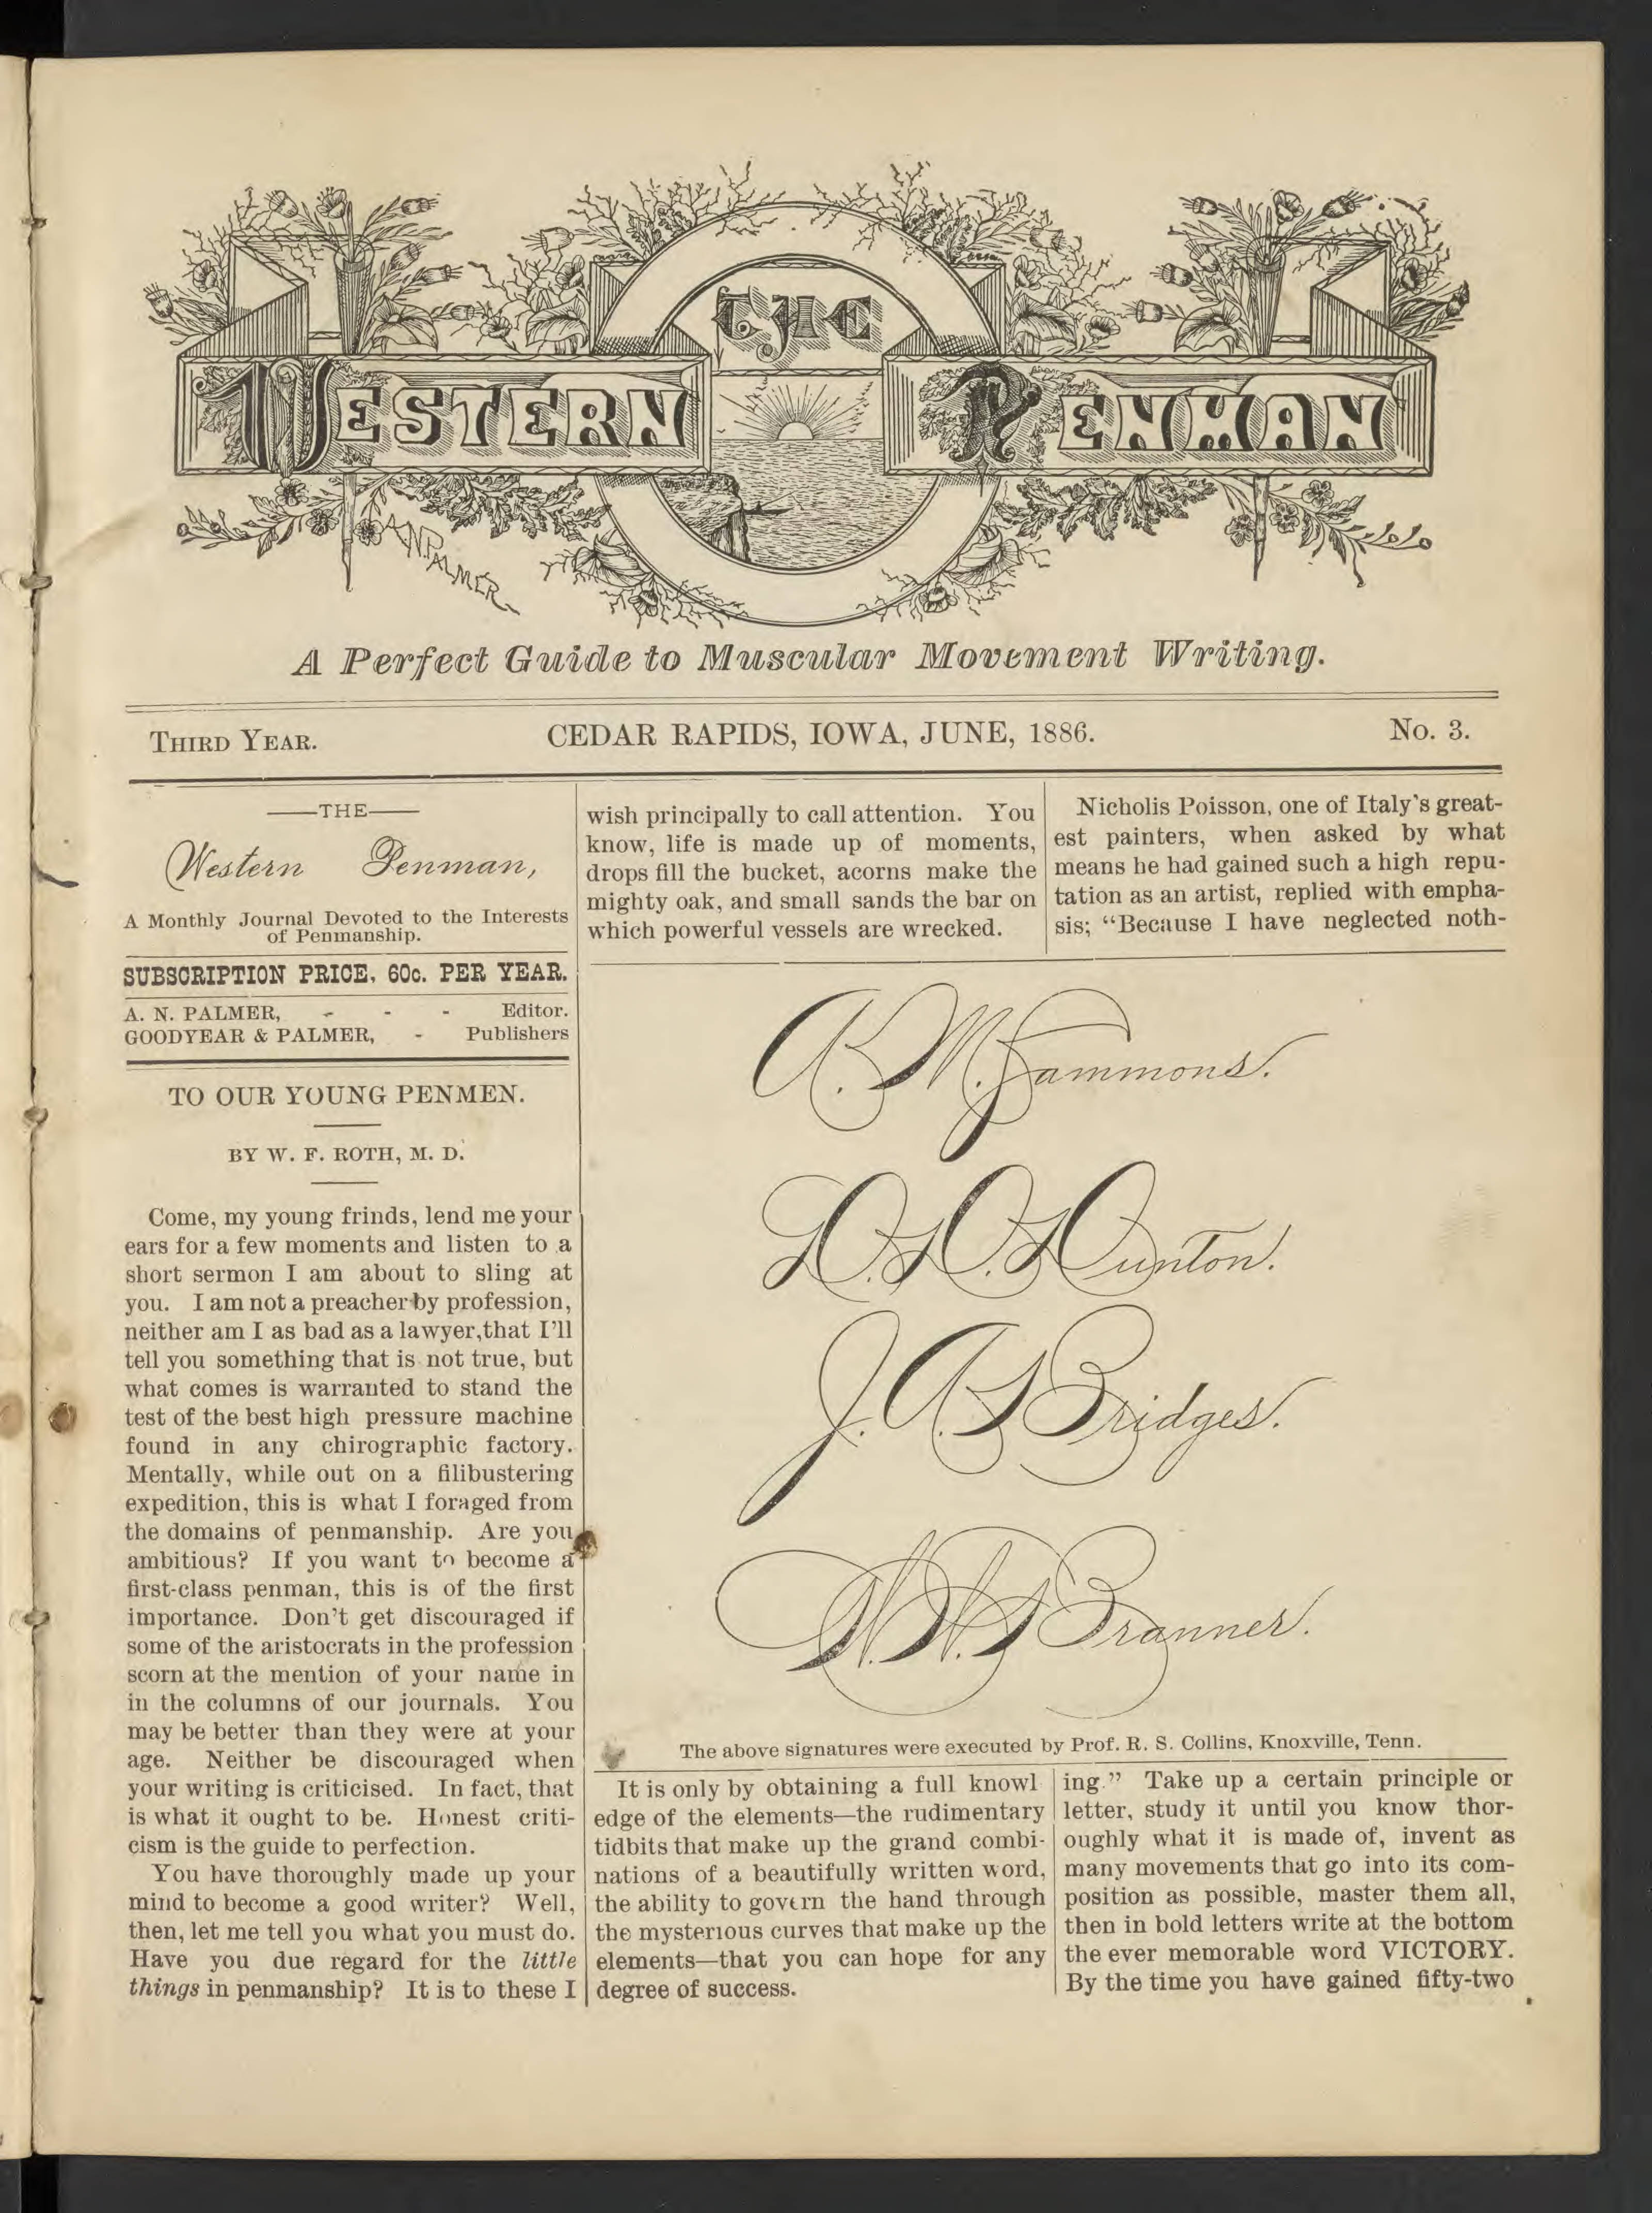 THE
WESTERN PENMAN
A.N. PALMER
A Perfect Guide to Muscular Movement Writing.
THIRD YEAR. CEDAR RAPIDS, IOWA, JUNE, 1886. No. 3.
—THE—
Western Penman,
A Monthly Journal Devoted to the Interests
of Penmanship.
SUBSCRIPTION PRICE, 60c. PER YEAR.
A. N. PALMER, - - - Editor.
GOODYEAR & PALMER, - Publishers
TO OUR YOUNG PENMEN.
BY W. F. ROTH, M. D.
Come, my young frinds, lend me your
ears for a few moments and listen to a
short sermon I am about to sling at
you. I am not a preacher by profession,
neither am I as bad as a lawyer,that I'll
tell you something that is not true, but
what comes is warranted to stand the
test of the best high pressure machine
found in any chirographic factory.
Mentally, while out on a filibustering
expedition, this is what I foraged from
the domains of penmanship. Are you
ambitious? If you want to become a
first-class penman, this is of the first
importance. Don't get discouraged if
some of the aristocrats in the profession
scorn at the mention of your name in
in the columns of our journals. You
may be better than they were at your
age. Neither be discouraged when
your writing is criticised. In fact, that
is what it ought to be. Honest criti-
cism is the guide to perfection.
You have thoroughly made up your
mind to become a good writer? Well,
then, let me tell you what you must do.
Have you due regard for the little
things in penmanship? It is to these I
wish principally to call attention. You
know, life is made up of moments,
drops fill the bucket, acorns make the
mighty oak, and small sands the bar on
which powerful vessels are wrecked.
Nicholis Poisson, one of Italy's great-
est painters, when asked by what
means he had gained such a high repu-
tation as an artist, replied with empha-
sis; "Because I have neglected noth-
A. M. Sammons.
D. D. Dunton.
J. A. Bridges.
W. W. Branner.
The above signatures were executed by Prof. R. S. Collins, Knoxville, Tenn.
It is only by obtaining a full knowl
edge of the elements—the rudimentary
tidbits that make up the grand combi-
nations of a beautifully written word,
the ability to govern the hand through
the mysterious curves that make up the
elements—that you can hope for any
degree of success.
ing." Take up a certain principle or
letter, study it until you know thor-
oughly what it is made of, invent as
many movements that go into its com-
position as possible, master them all,
then in bold letters write at the bottom
the ever memorable word VICTORY.
By the time you have gained fifty-two